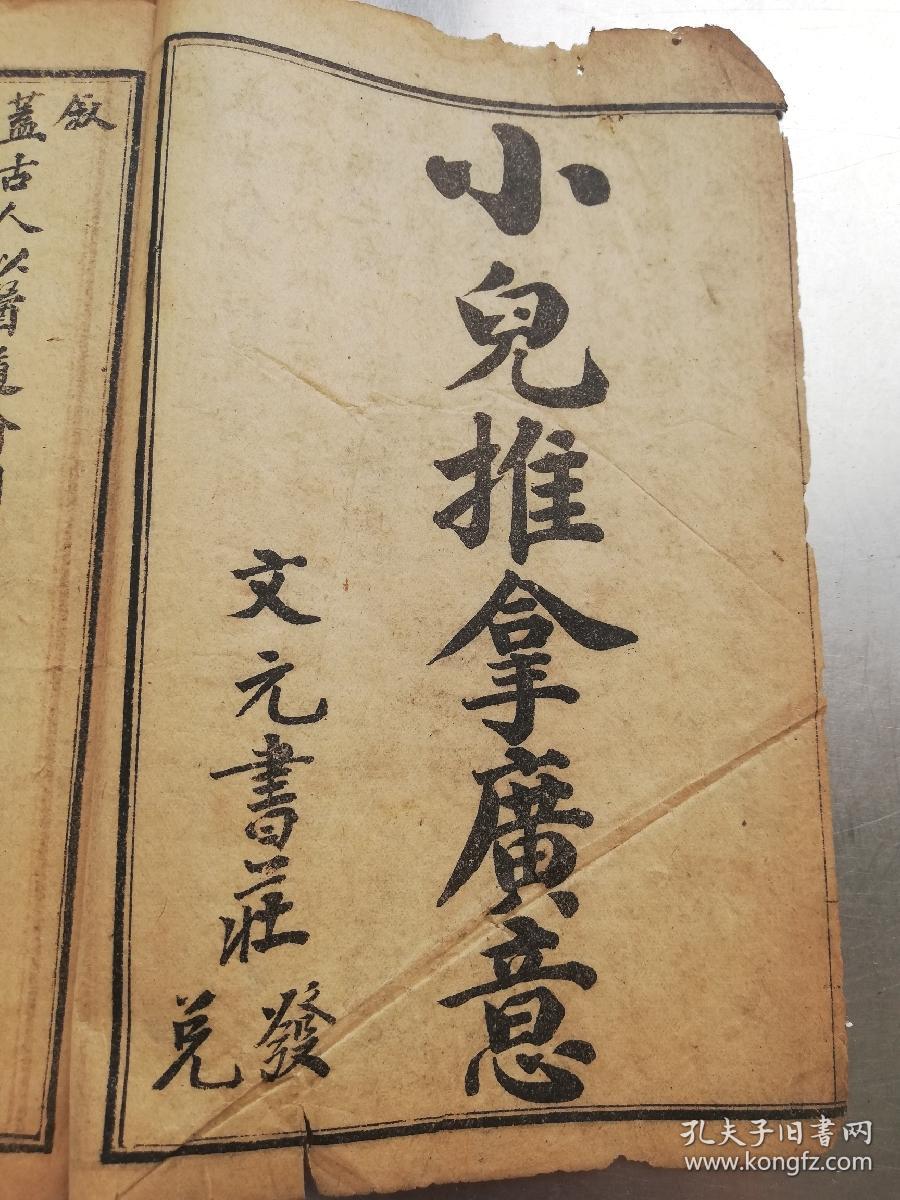 小兒推拿廣意
文元書莊
發兑
叙
蓋古人以醫道
孔夫子旧書网
www.kongfz.com